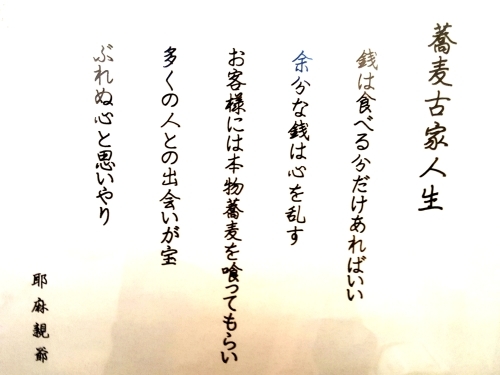 蕎麦古家人生
銭は食べる分だけあればいい
余分な銭は心を乱す
お客様には本物蕎麦を喰ってもらい
多くの人との出会いが宝
ぶれぬ心と思いやり
耶麻親爺